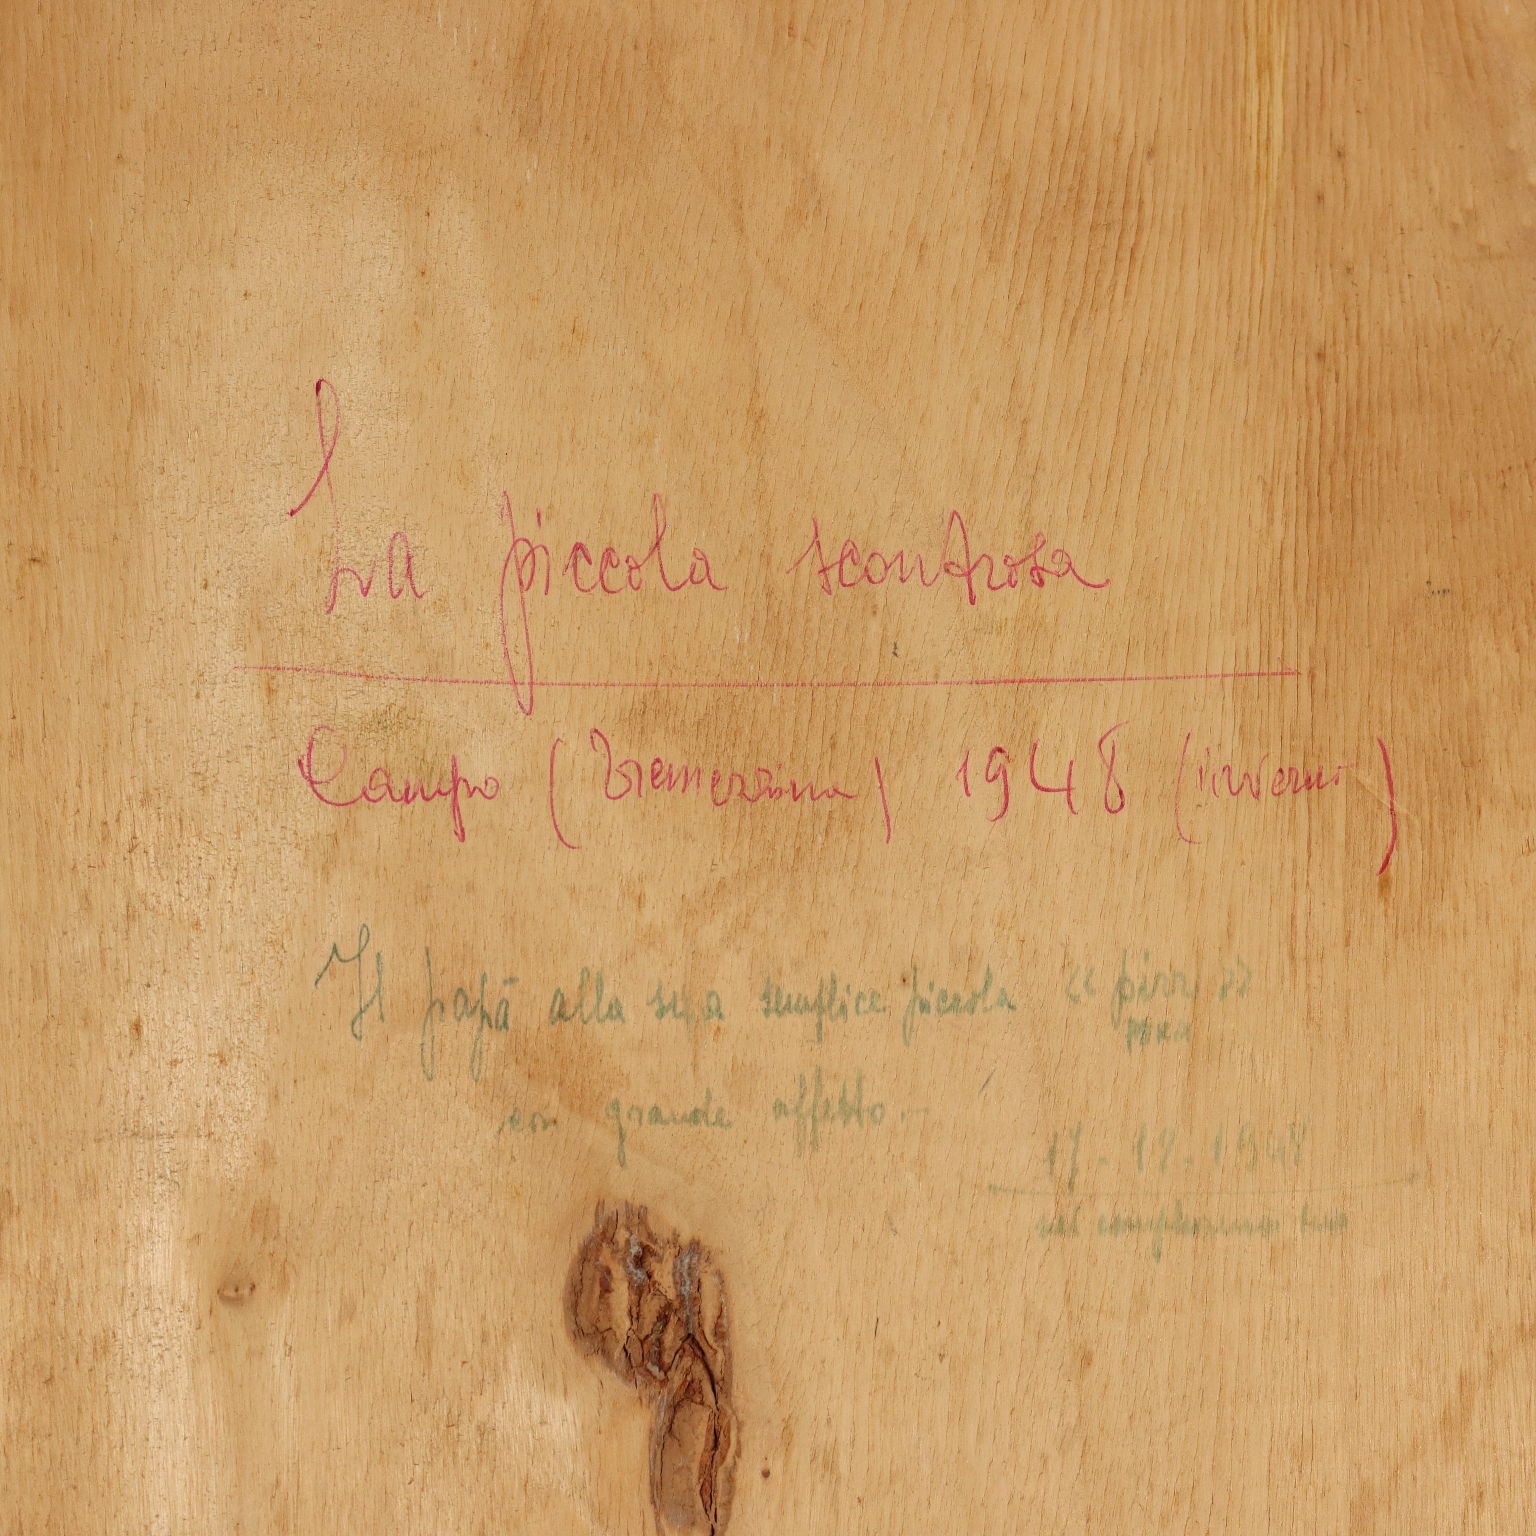 La piccola scontrosa
Campo (Tremezzina) 1948 (inverno)
Il papà alla sua semplice piccola
con grande affetto.-
nel compleanno suo